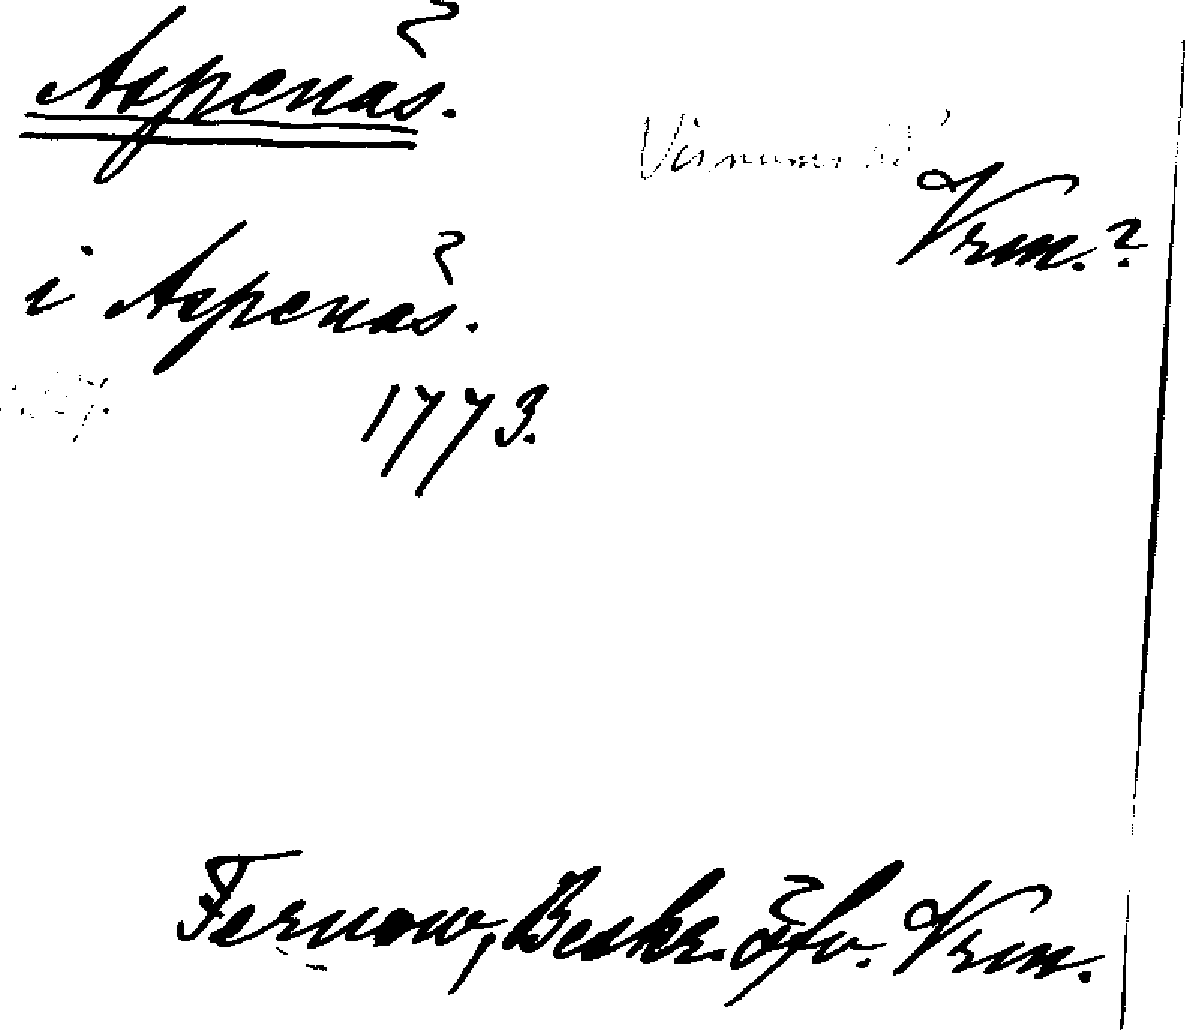 Aspenäs.
Visnums
Vrm.?
i Aspenäs.
1773.
Fernow, Beskr. öfv. Vrm.